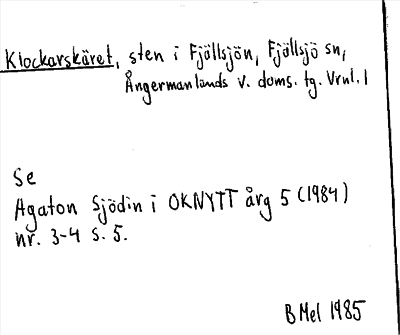 Klockarskäret, sten i Fjällsjön, Fjällsjö sn,
Ångermanlands v. doms. tg. Vrnl. l
Se
Agaton Sjödin i OKNYTT årg 5 (1984)
nr. 3-4 s. 5.
B Mel 1985